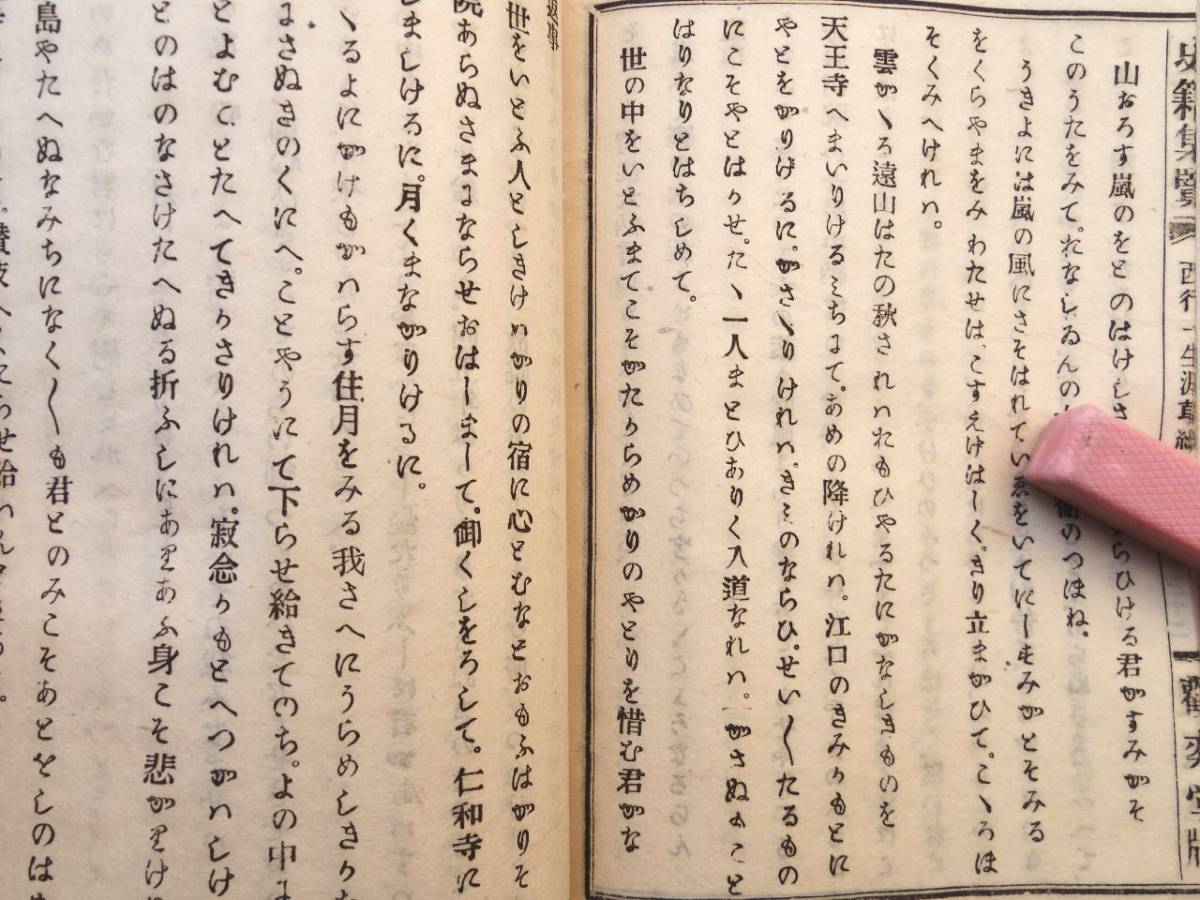 史籍集覽 西行一生涯草紙 觀奕堂版
山おろす嵐のをとのはけしさ らひける君かすみかそ
このうたをみて。たなしゐんの 衞のつほね。
うきよには嵐の風にさそはれていゑをいてにしすみかとそみる
をくらやまをみわたせは、こすえけはしく。きり立まかひて。こゝろほ
そくみへけれハ。
雲かゝる遠山はたの秋されハたもひやるたにかなしきものを
天王寺へまいりけるミちにて。あめの降けれハ。江口のきみかもとに
やとをかりけるに。かさゝりけれハ、きミのならひ。せい〱たるもの
にこそやとはかせ。たゝ一人まとひありく入道なれハ。かさぬも こと
はりなりとはちしめて。
世の中をいとふまてこそかたからめかりのやとりを惜む君かな
世をいとふ人としきけハかりの宿に心とむなとおもふはかりそ
院あらぬさまにならせおはしまして。御くしをろして。仁和寺に
しましけるに。月くまなかりけるに。
かゝるよにかけもかハらす住月をみる我さへにうらめしきかな
さぬきのくにへ。ことやうにて下らせ給きてのち。よの中に
とよむことたへてきかさりけれハ。寂念かもとへつかハしけ
とのはのなさけたへぬる折ふしにありあふ身こそ悲かりけ
島やたへぬなみちになく〱も君とのみこそあとをしのはめ
讃岐へ らせ給